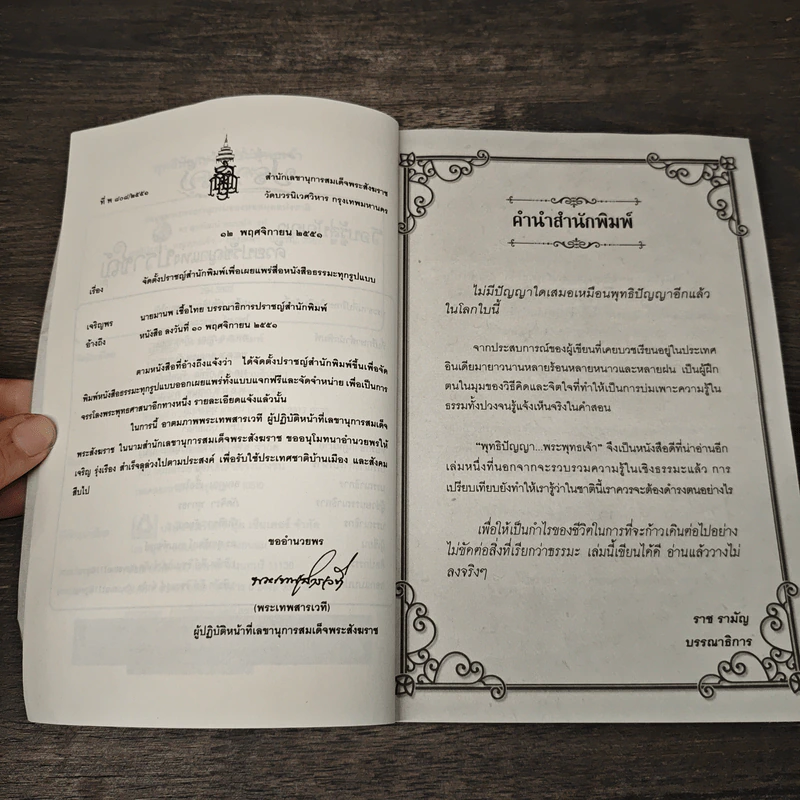 ที่ พ ๘๐๘/๒๕๕๑
สำนักเลขานุการสมเด็จพระสังฆราช
วัดบวรนิเวศวิหาร กรุงเทพมหานคร
๑๒ พฤศจิกายน ๒๕๕๑
เรื่อง จัดตั้งปราชญ์สำนักพิมพ์เพื่อเผยแพร่สื่อหนังสือธรรมะทุกรูปแบบ
เจริญพร นายมานพ เชื้อไทย บรรณาธิการปราชญ์สำนักพิมพ์
อ้างถึง หนังสือ ลงวันที่ ๑๐ พฤศจิกายน ๒๕๕๑
ตามหนังสือที่อ้างถึงแจ้งว่า ได้จัดตั้งปราชญ์สำนักพิมพ์ขึ้นเพื่อจัด
พิมพ์หนังสือธรรมะทุกรูปแบบออกเผยแพร่ทั้งแบบแจกฟรีและจัดจำหน่าย เพื่อเป็นการ
จรรโลงพระพุทธศาสนาอีกทางหนึ่ง รายละเอียดแจ้งแล้วนั้น
ในการนี้ อาตมภาพพระเทพสารเวที ผู้ปฏิบัติหน้าที่เลขานุการสมเด็จ
พระสังฆราช ในนามสำนักเลขานุการสมเด็จพระสังฆราช ขออนุโมทนาอำนวยพรให้
เจริญ รุ่งเรือง สำเร็จลุล่วงไปตามประสงค์ เพื่อรับใช้ประเทศชาติบ้านเมือง และสังคม
สืบไป
ขออำนวยพร
พระเทพสารเวที
(พระเทพสารเวที)
ผู้ปฏิบัติหน้าที่เลขานุการสมเด็จพระสังฆราช
คำนำสำนักพิมพ์
ไม่มีปัญญาใดเสมอเหมือนพุทธิปัญญาอีกแล้ว
ในโลกใบนี้
จากประสบการณ์ของผู้เขียนที่เคยบวชเรียนอยู่ในประเทศ
อินเดียมายาวนานหลายร้อนหลายหนาวและหลายฝน เป็นผู้ฝึก
ตนในมุมของวิธีคิดและจิตใจที่ทำให้เป็นการบ่มเพาะความรู้ใน
ธรรมทั้งปวงจนรู้แจ้งเห็นจริงในคำสอน
“พุทธิปัญญา...พระพุทธเจ้า” จึงเป็นหนังสือดีที่น่าอ่านอีก
เล่มหนึ่งที่นอกจากจะรวบรวมความรู้ในเชิงธรรมะแล้ว การ
เปรียบเทียบยังทำให้เรารู้ว่าในชาตินี้เราควรจะต้องดำรงตนอย่างไร
เพื่อให้เป็นกำไรของชีวิตในการที่จะก้าวเดินต่อไปอย่าง
ไม่ขัดต่อสิ่งที่เรียกว่าธรรมะ เล่มนี้เขียนได้ดี อ่านแล้ววางไม่
ลงจริงๆ
ราช รามัญ
บรรณาธิการ